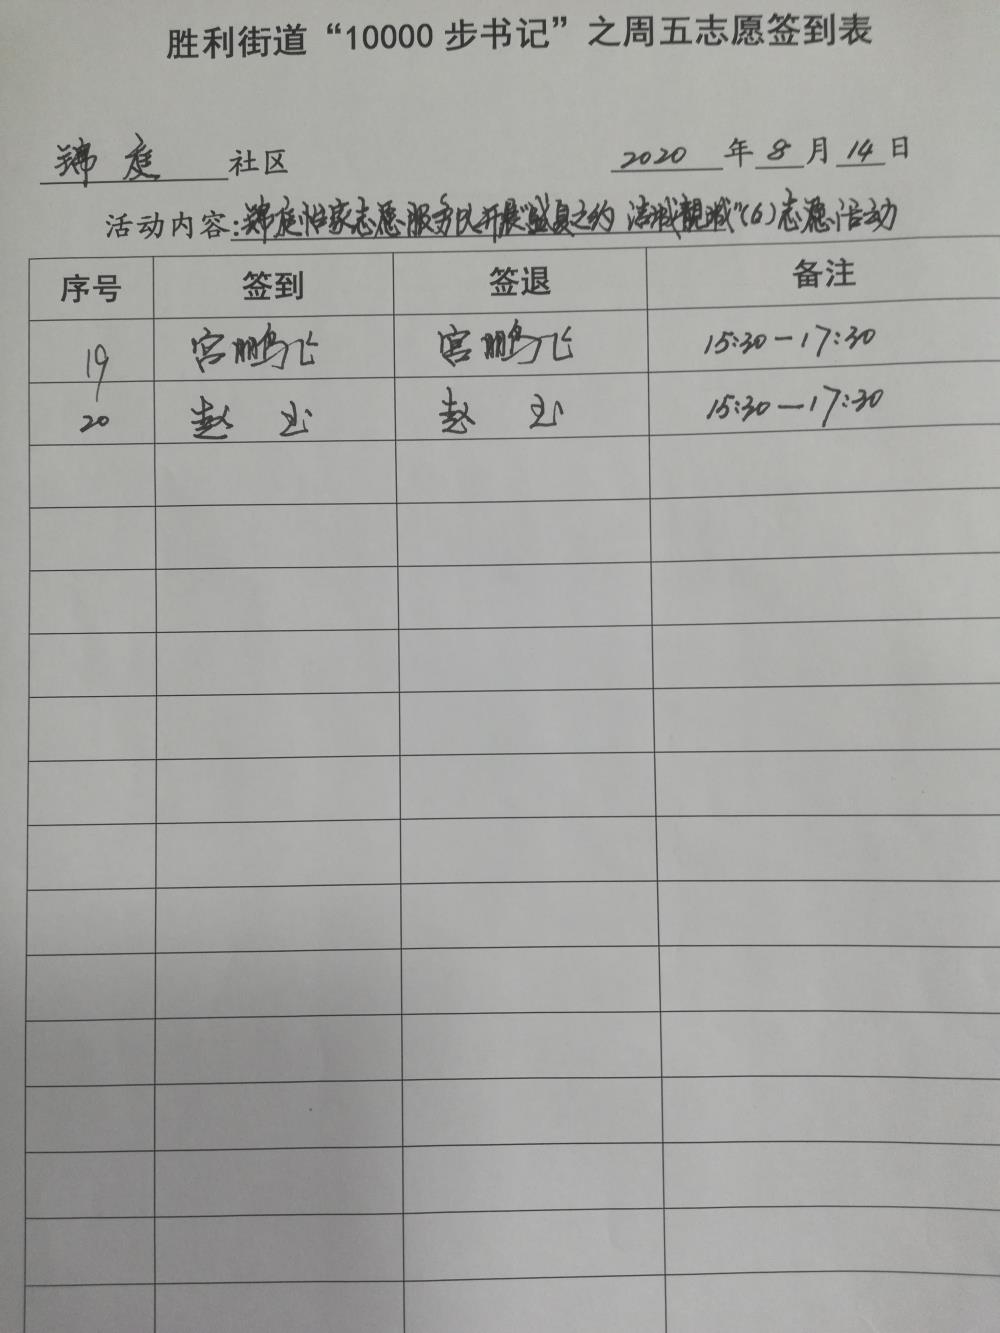 胜利街道“10000步书记”之周五志愿签到表
锦庭社区 2020年8月14日
活动内容:锦庭怡家志愿服务队开展“盛夏之约 洁城靓城”(6)志愿活动
序号 签到 签退 备注
19 宫鹏飞 宫鹏飞 15:30-17:30
20 赵 赵 15:30-17:30